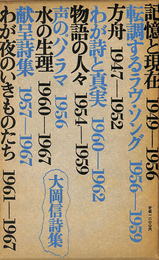 記憶と現在 1949—1956
転調するラヴ・ソング 1956—1959
方舟 1947—1952
わが詩と真実 1960—1962
物語の人々 1954—1959
声のパノラマ 1956
水の生理 1960—1967
献呈詩集 1957—1967
わが夜のいきものたち 1961—1967
大岡信詩集